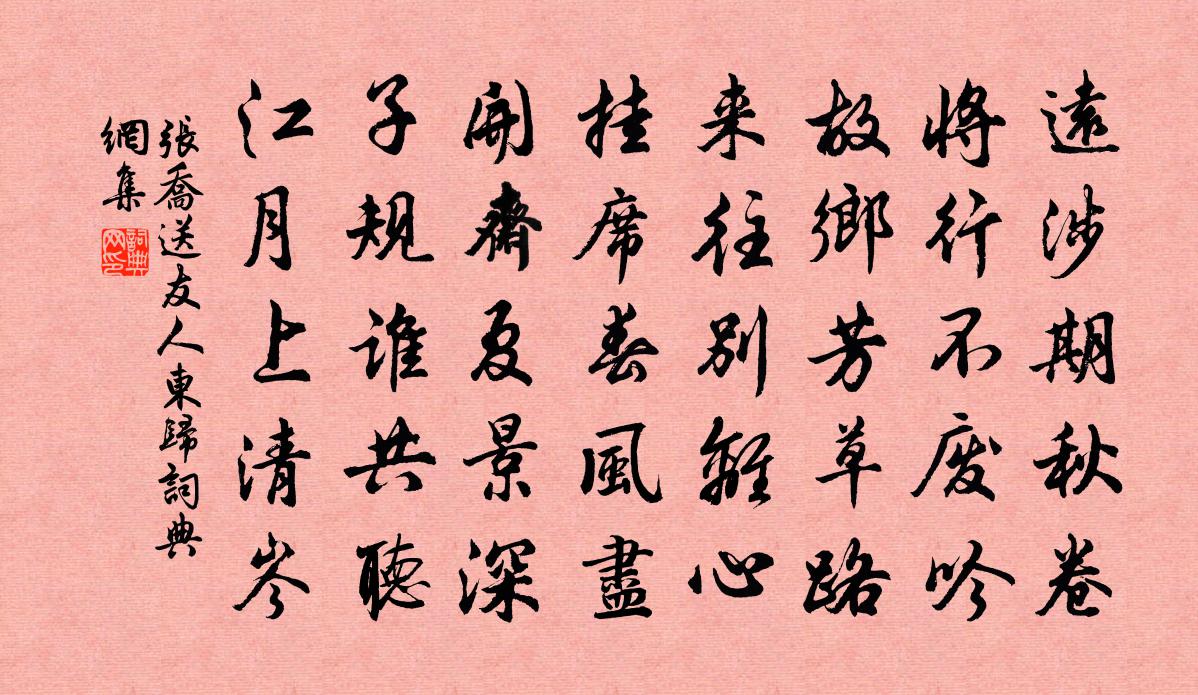 遠涉期秋卷
將行不废吟
故鄉芳草路
来往別離心
挂席春風盡
開齋夏景深
子規誰共聽
江月上清岑
張喬送友人東歸詞典
網集
詞典
网印